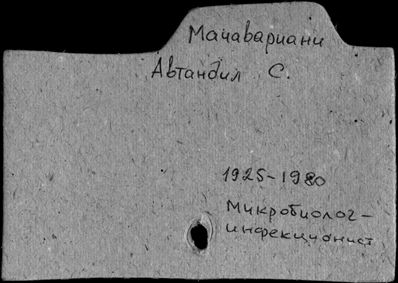 Мачавариани
Автандил С.
1925-1980
Микробиолог-
инфекционист